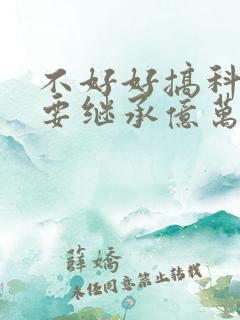 不好好搞科
要继承億萬
薛嬌
未经同意禁止转载